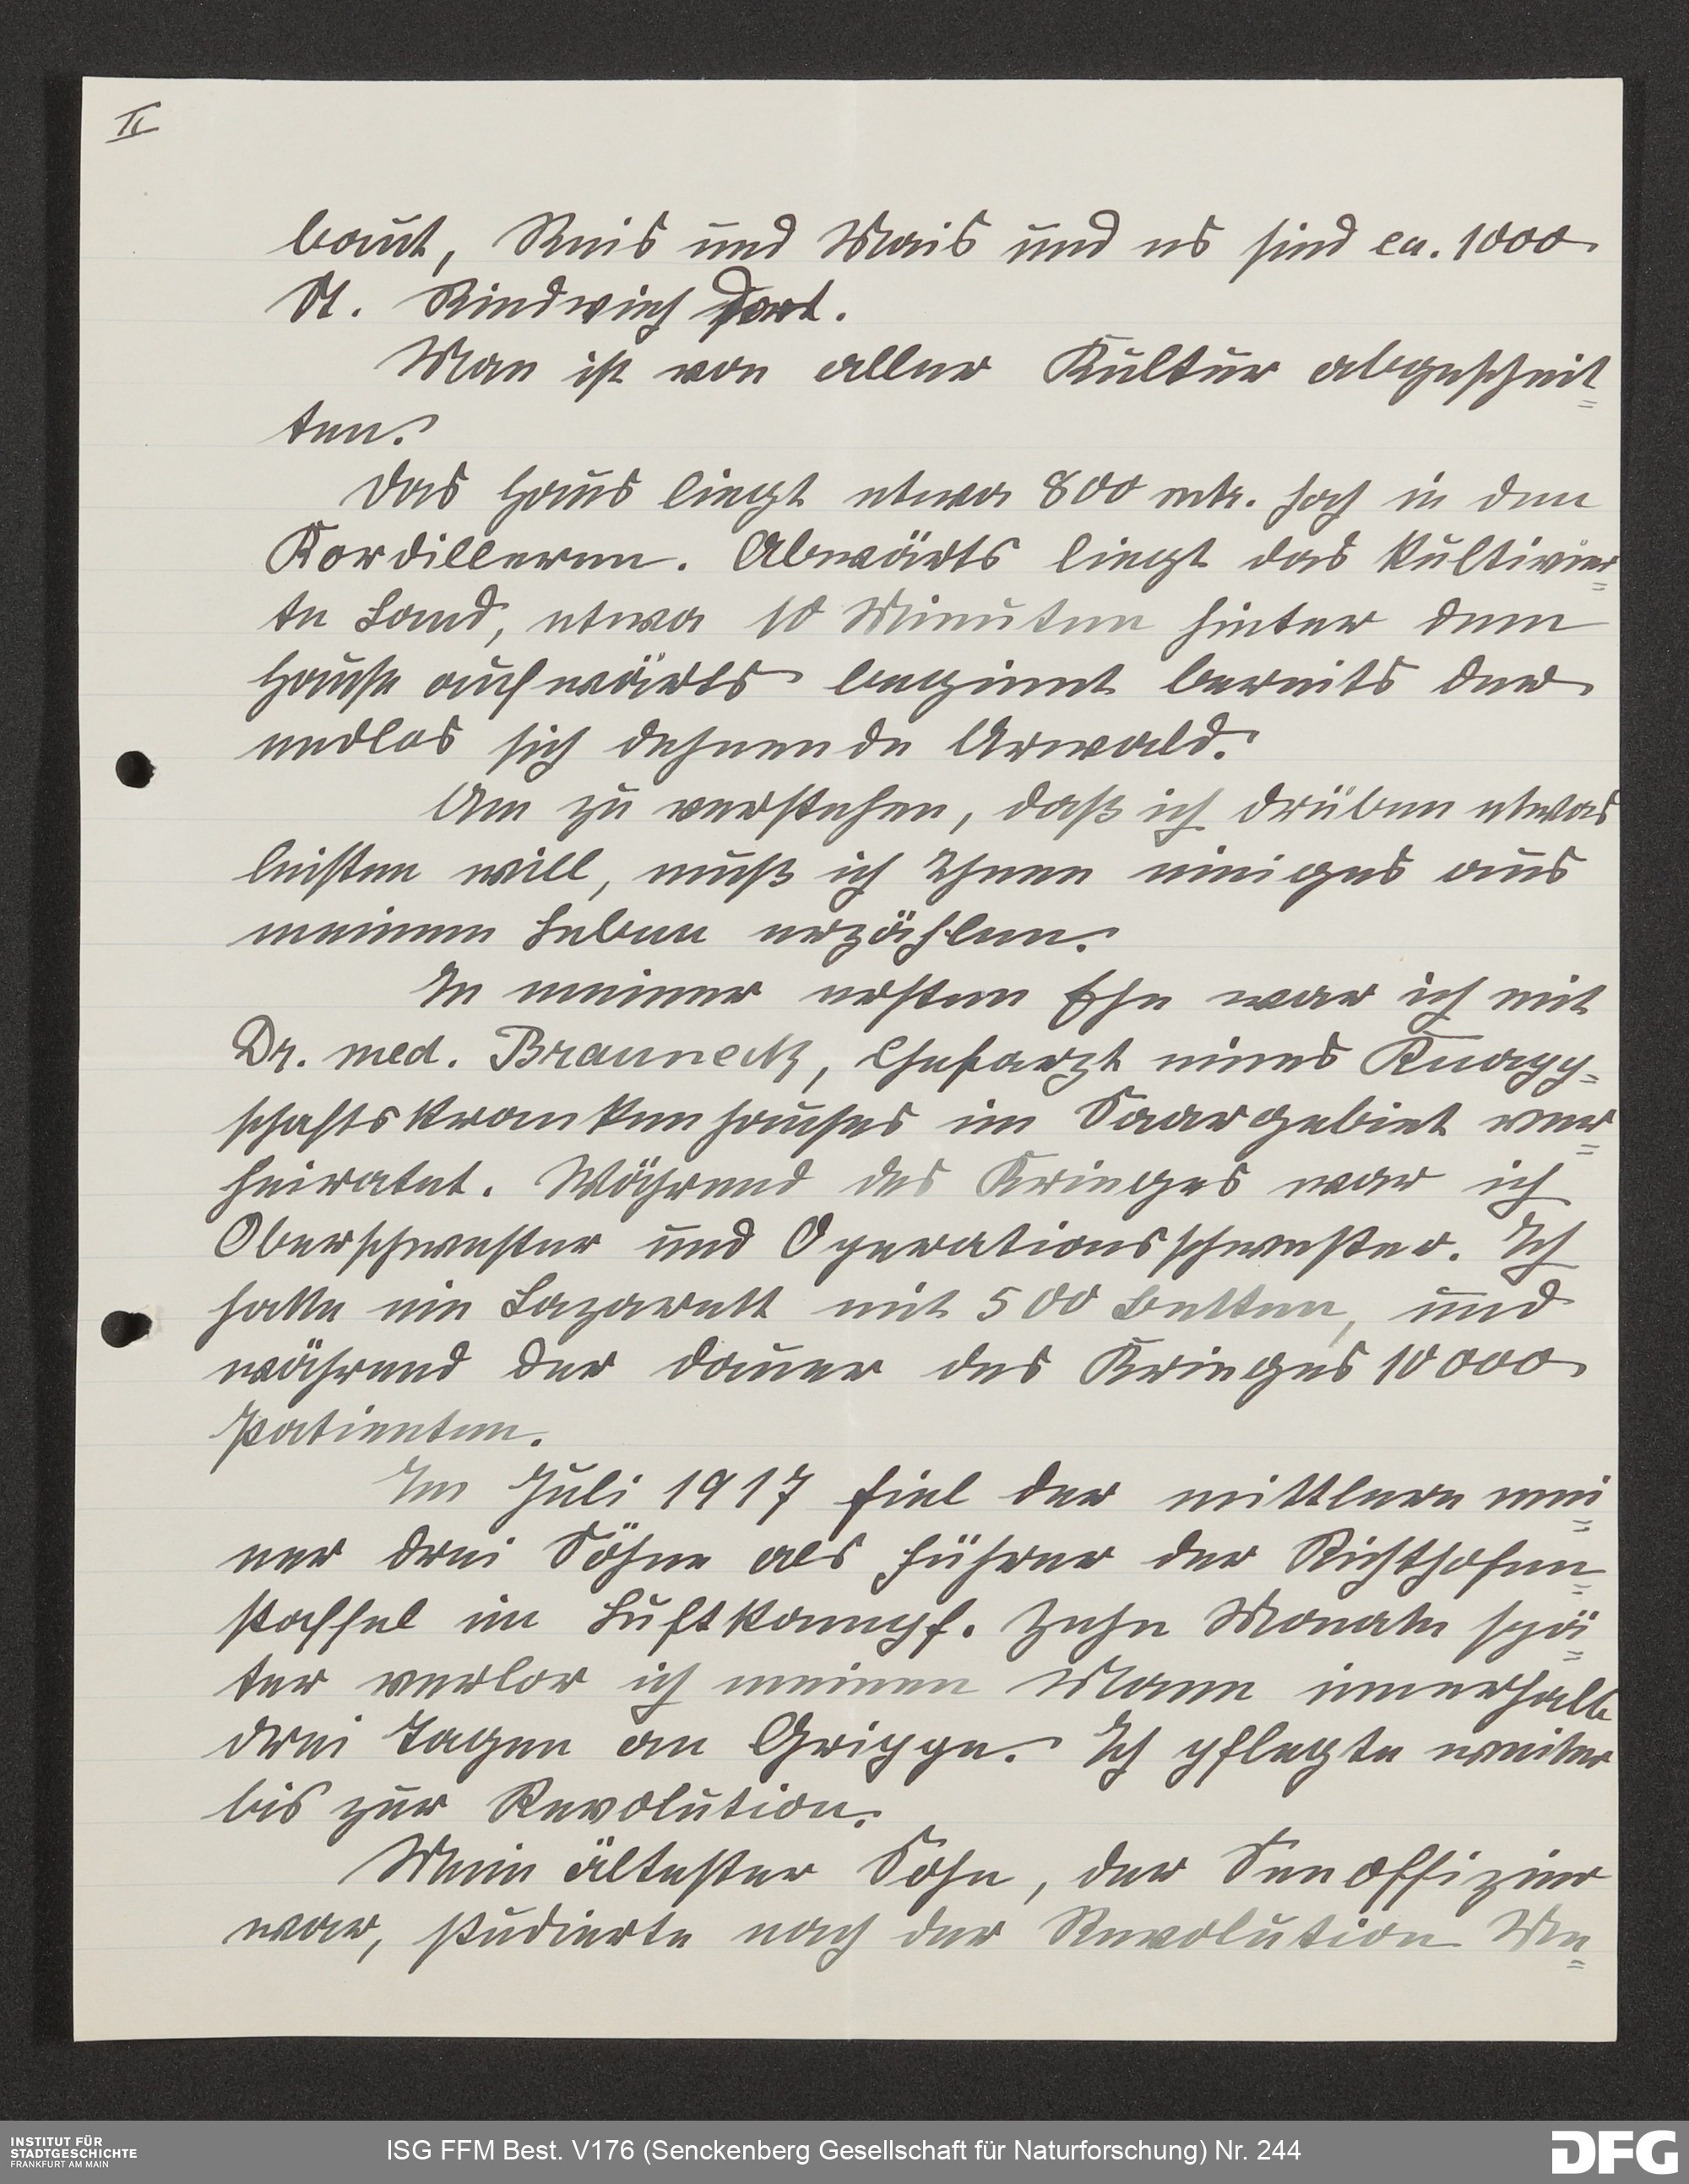 II
baut, Reis und Mais und es sind ca. 1000
St. Rindvieh dort.
Man ist von aller Kultur abgeschnit=
ten.
Das Haus liegt etwa 800 mtr. hoch in den
Kordilleren. Abwärts liegt das kultivier=
te Land, etwa 10 Minuten hinter dem
Hause aufwärts beginnt bereits der
endlos sich dehnende Urwald.
Um zu verstehen, daß ich drüben etwas
leisten will, muß ich Ihnen einiges aus
meinem Leben erzählen.
In meiner ersten Ehe war ich mit
Dr. med. Brauneck, Chefarzt eines Knapp=
schaftskrankenhauses im Saargebiet ver=
heiratet. Während des Krieges war ich
Oberschwester und Operationsschwester. Ich
hatte ein Lazarett mit 500 Betten, und
während der Dauer des Krieges 10000
Patienten.
Im Juli 1917 fiel der mittlere mei=
ner drei Söhne als Führer der Richthofen=
staffel im Luftkampf. Zehn Monate spä=
ter verlor ich meinen Mann innerhalb
drei Tagen an Grippe. Ich pflegte weiter
bis zur Revolution.
Mein ältester Sohn, der Seeoffizier
war, studierte nach der Revolution Me=
INSTITUT FÜR
STADTGESCHICHTE
FRANKFURT AM MAIN
ISG FFM Best. V176 (Senckenberg Gesellschaft für Naturforschung) Nr. 244
DFG